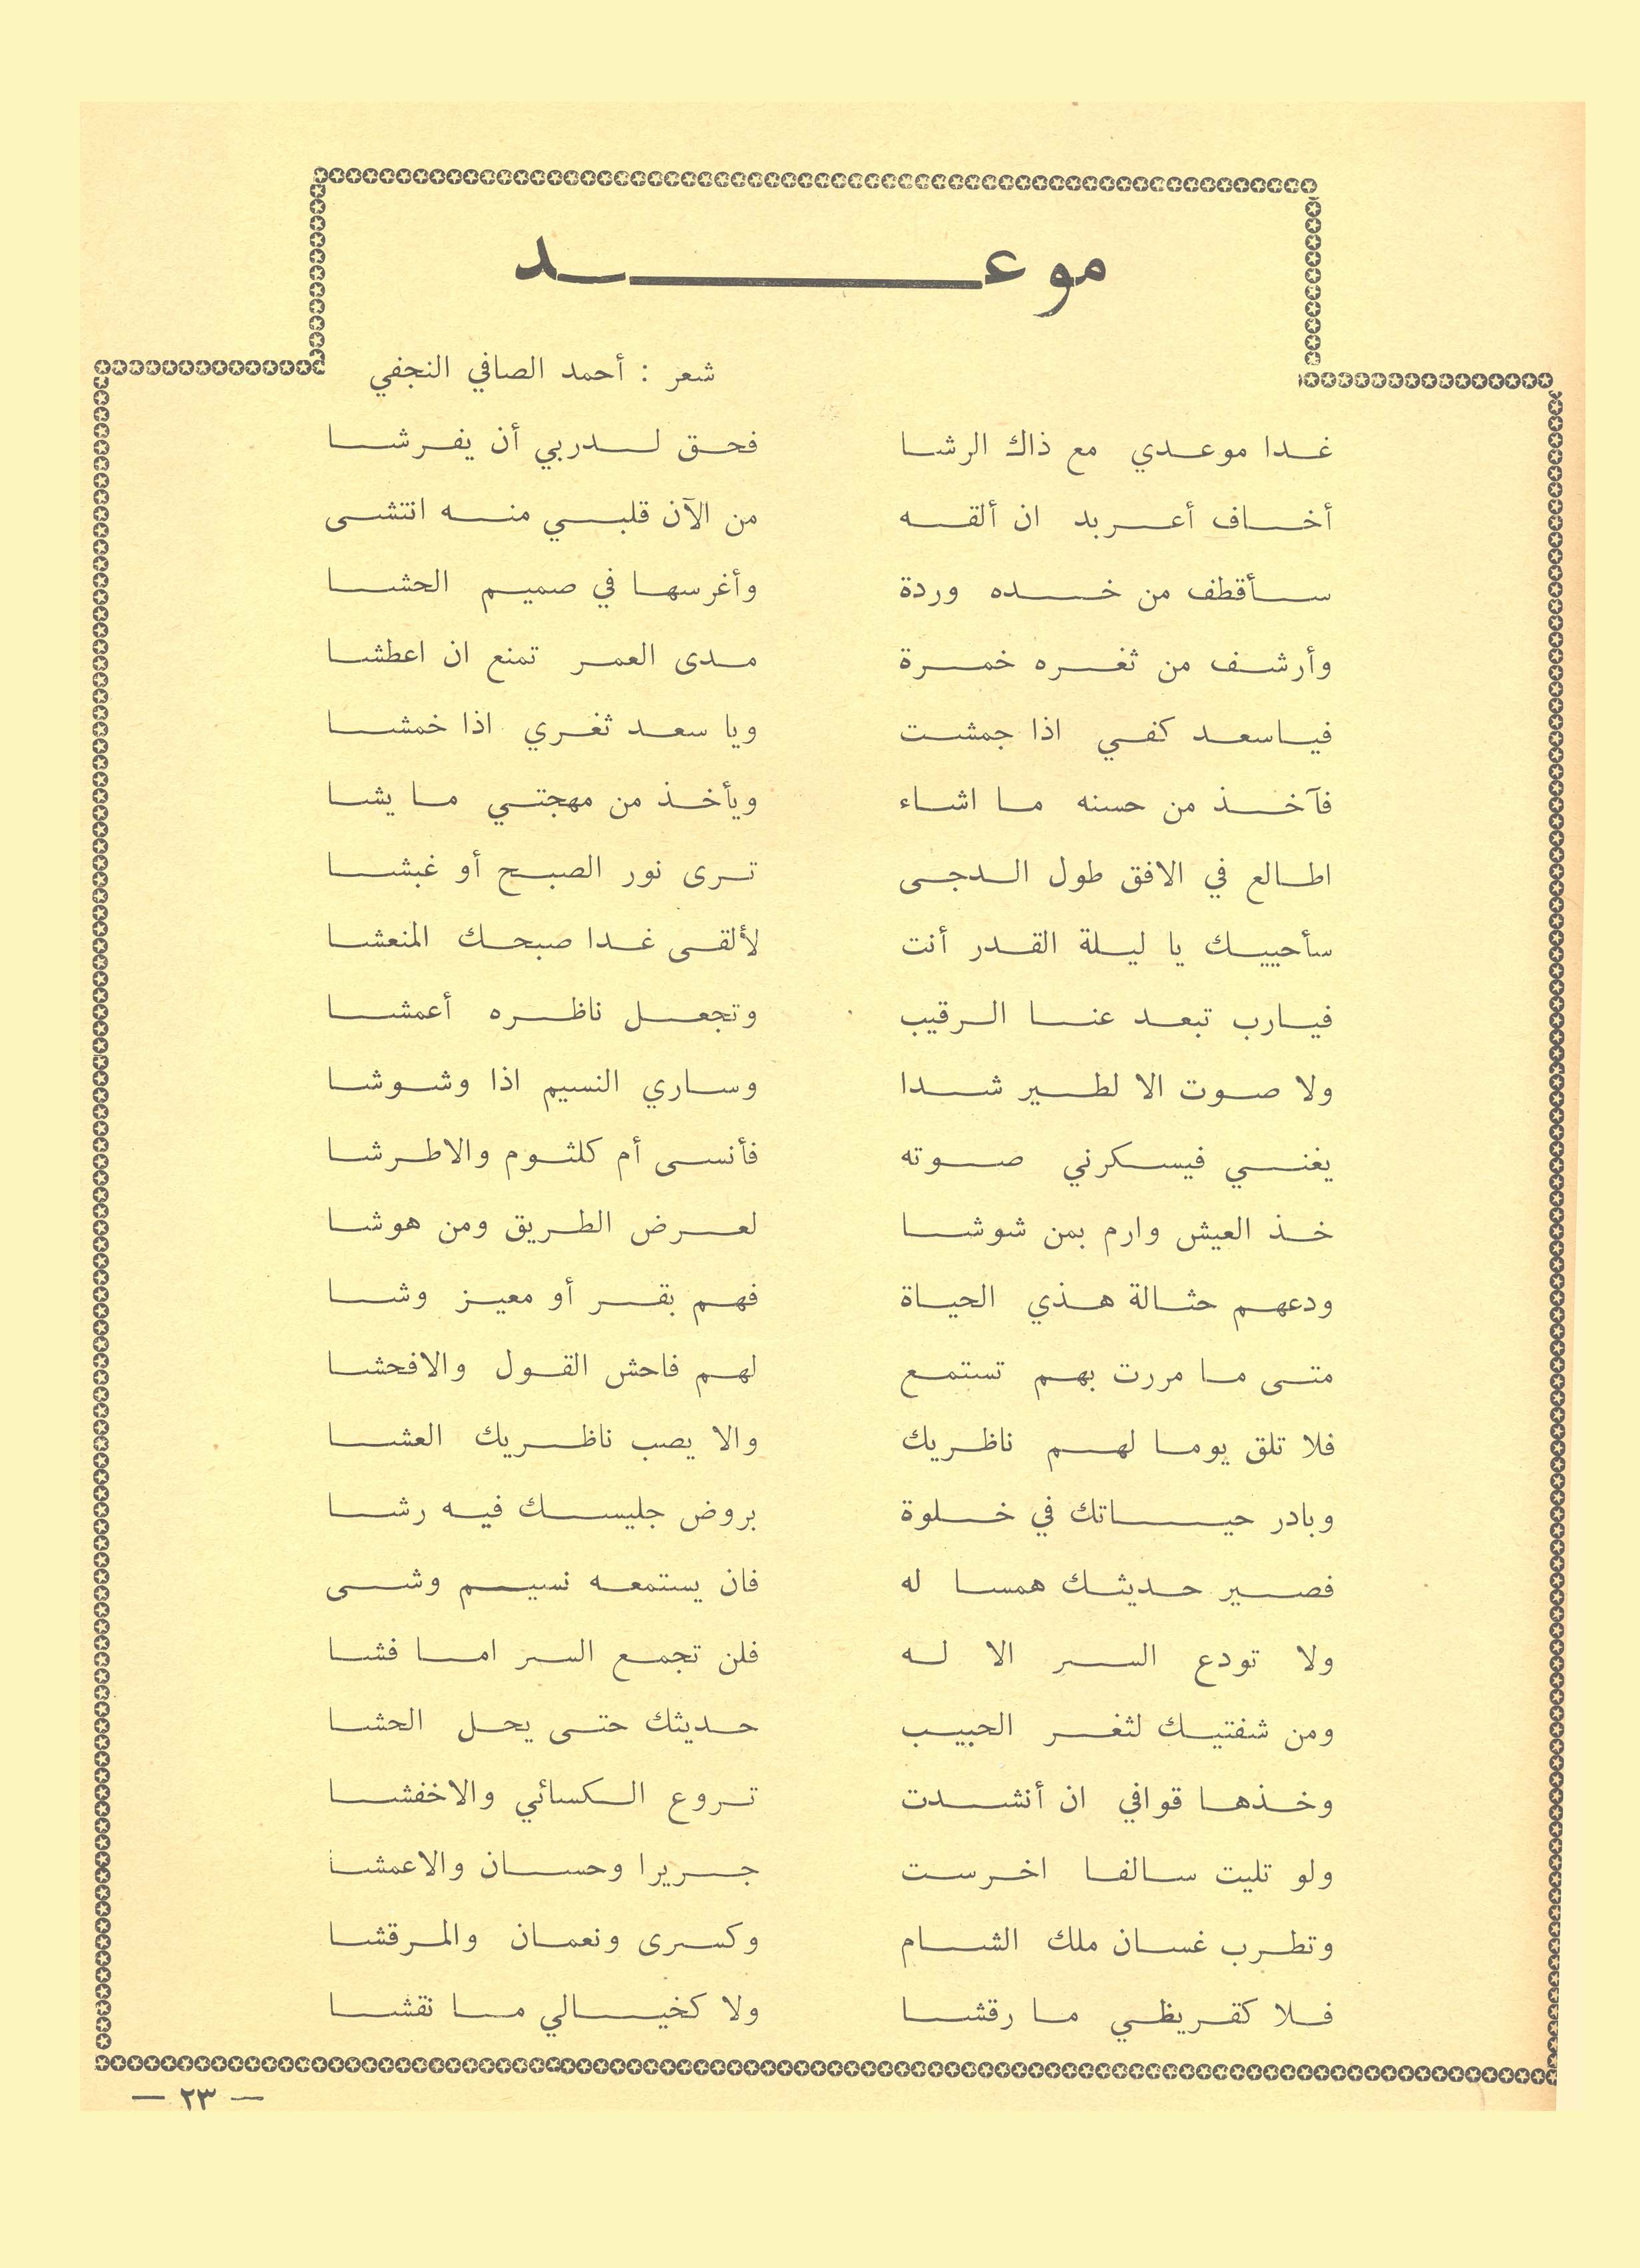 موعد
شعر : أحمد الصافي النجفي
غدا موعدي مع ذاك الرشا فحق لدربي أن يفرشا
أخاف أعربد ان ألقه من الآن قلبي منه انتشى
سأقطف من خده وردة وأغرسها في صميم الحشا
وأرشف من ثغره خمرة مدى العمر تمنع ان اعطشا
فياسعد كفي اذا جمشت ويا سعد ثغري اذا خمشا
فآخذ من حسنه ما اشاء ويأخذ من مهجتي ما يشا
اطالع في الافق طول الدجى ترى نور الصبح أو غبشا
سأحييك يا ليلة القدر أنت لألقى غدا صبحك المنعشا
فيارب تبعد عنا الرقيب وتجعل ناظره أعمشا
ولا صوت الا لطير شدا وساري النسيم اذا وشوشا
يغني فيسكرني صوته فأنسى أم كلثوم والاطرشا
خذ العيش وارم بمن شوشا لعرض الطريق ومن هوشا
ودعهم حثالة هذي الحياة فهم بقر أو معيز وشا
متى ما مررت بهم تستمع لهم فاحش القول والافحشا
فلا تلق يوما لهم ناظريك والا يصب ناظريك العشا
وبادر حياتك في خلوة بروض جليسك فيه رشا
فصير حديثك همسا له فان يستمعه نسيم وشى
ولا تودع السر الا له فلن تجمع السر اما فشا
ومن شفتيك لثغر الحبيب حديثك حتى يحل الحشا
وخذها قوافي ان أنشدت تروع الكسائي والاخفشا
ولو تليت سالفا اخرست جريرا وحسان والاعمشا
وتطرب غسان ملك الشام وكسرى ونعمان والمرقشا
فلا كقريظي ما رقشا ولا كخيالي ما نقشا
— ٢٣ —